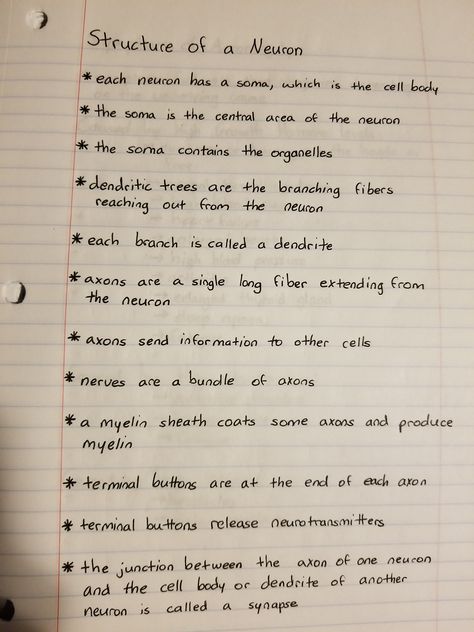 Structure of a Neuron
* each neuron has a soma, which is the cell body
* the soma is the central area of the neuron
* the soma contains the organelles
* dendritic trees are the branching fibers
reaching out from the neuron
* each branch is called a dendrite
* axons are a single long fiber extending from
the neuron
* axons send information to other cells
* nerves are a bundle of axons
* a myelin sheath coats some axons and produce
myelin
* terminal buttons are at the end of each axon
* terminal buttons release neurotransmitters
* the junction between the axon of one neuron
and the cell body or dendrite of another
neuron is called a synapse